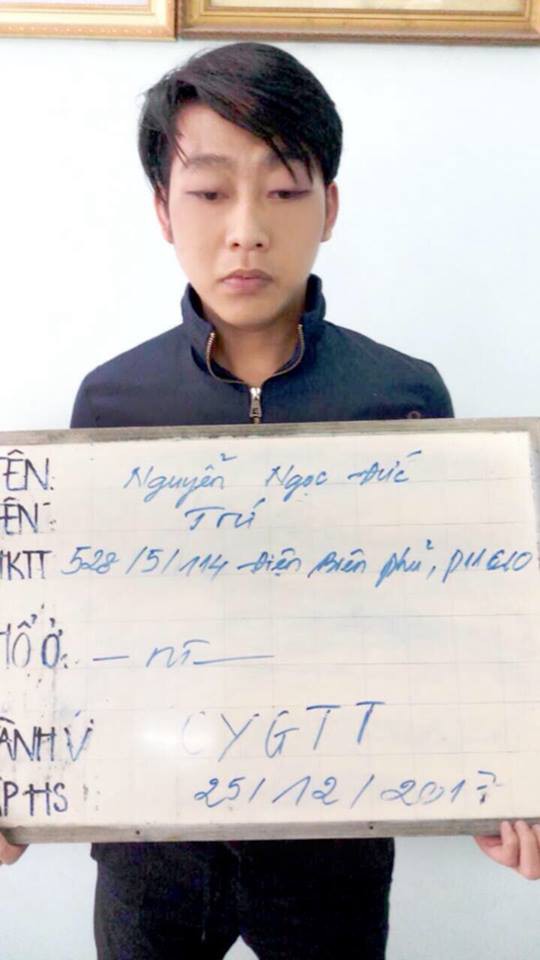 ÊN: Nguyễn Ngọc Đức
ÊN: Trí
KTT 528/5/114 Điện Biên phủ, P11 Q10
HỖ Ở: — nt —
ÀNH VI CYGTT
PHS 25/12/2017